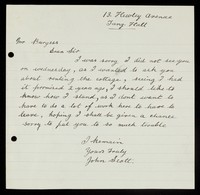 13. Flewley Avenue
Tang Hall
Geo Sawyer.
Dear Sir
I was sorry I did not see you
on wednesday, as I wanted to ask you
about sealing the cottage, seeing I had
it promised 2 years ago, I should like to
know how I stand, as I dont want to
have to do a lot of work here to have to
leave, hoping I shall be given a chance
sorry to put you to so much trouble
I Remain
Yours Truly
John Scott.